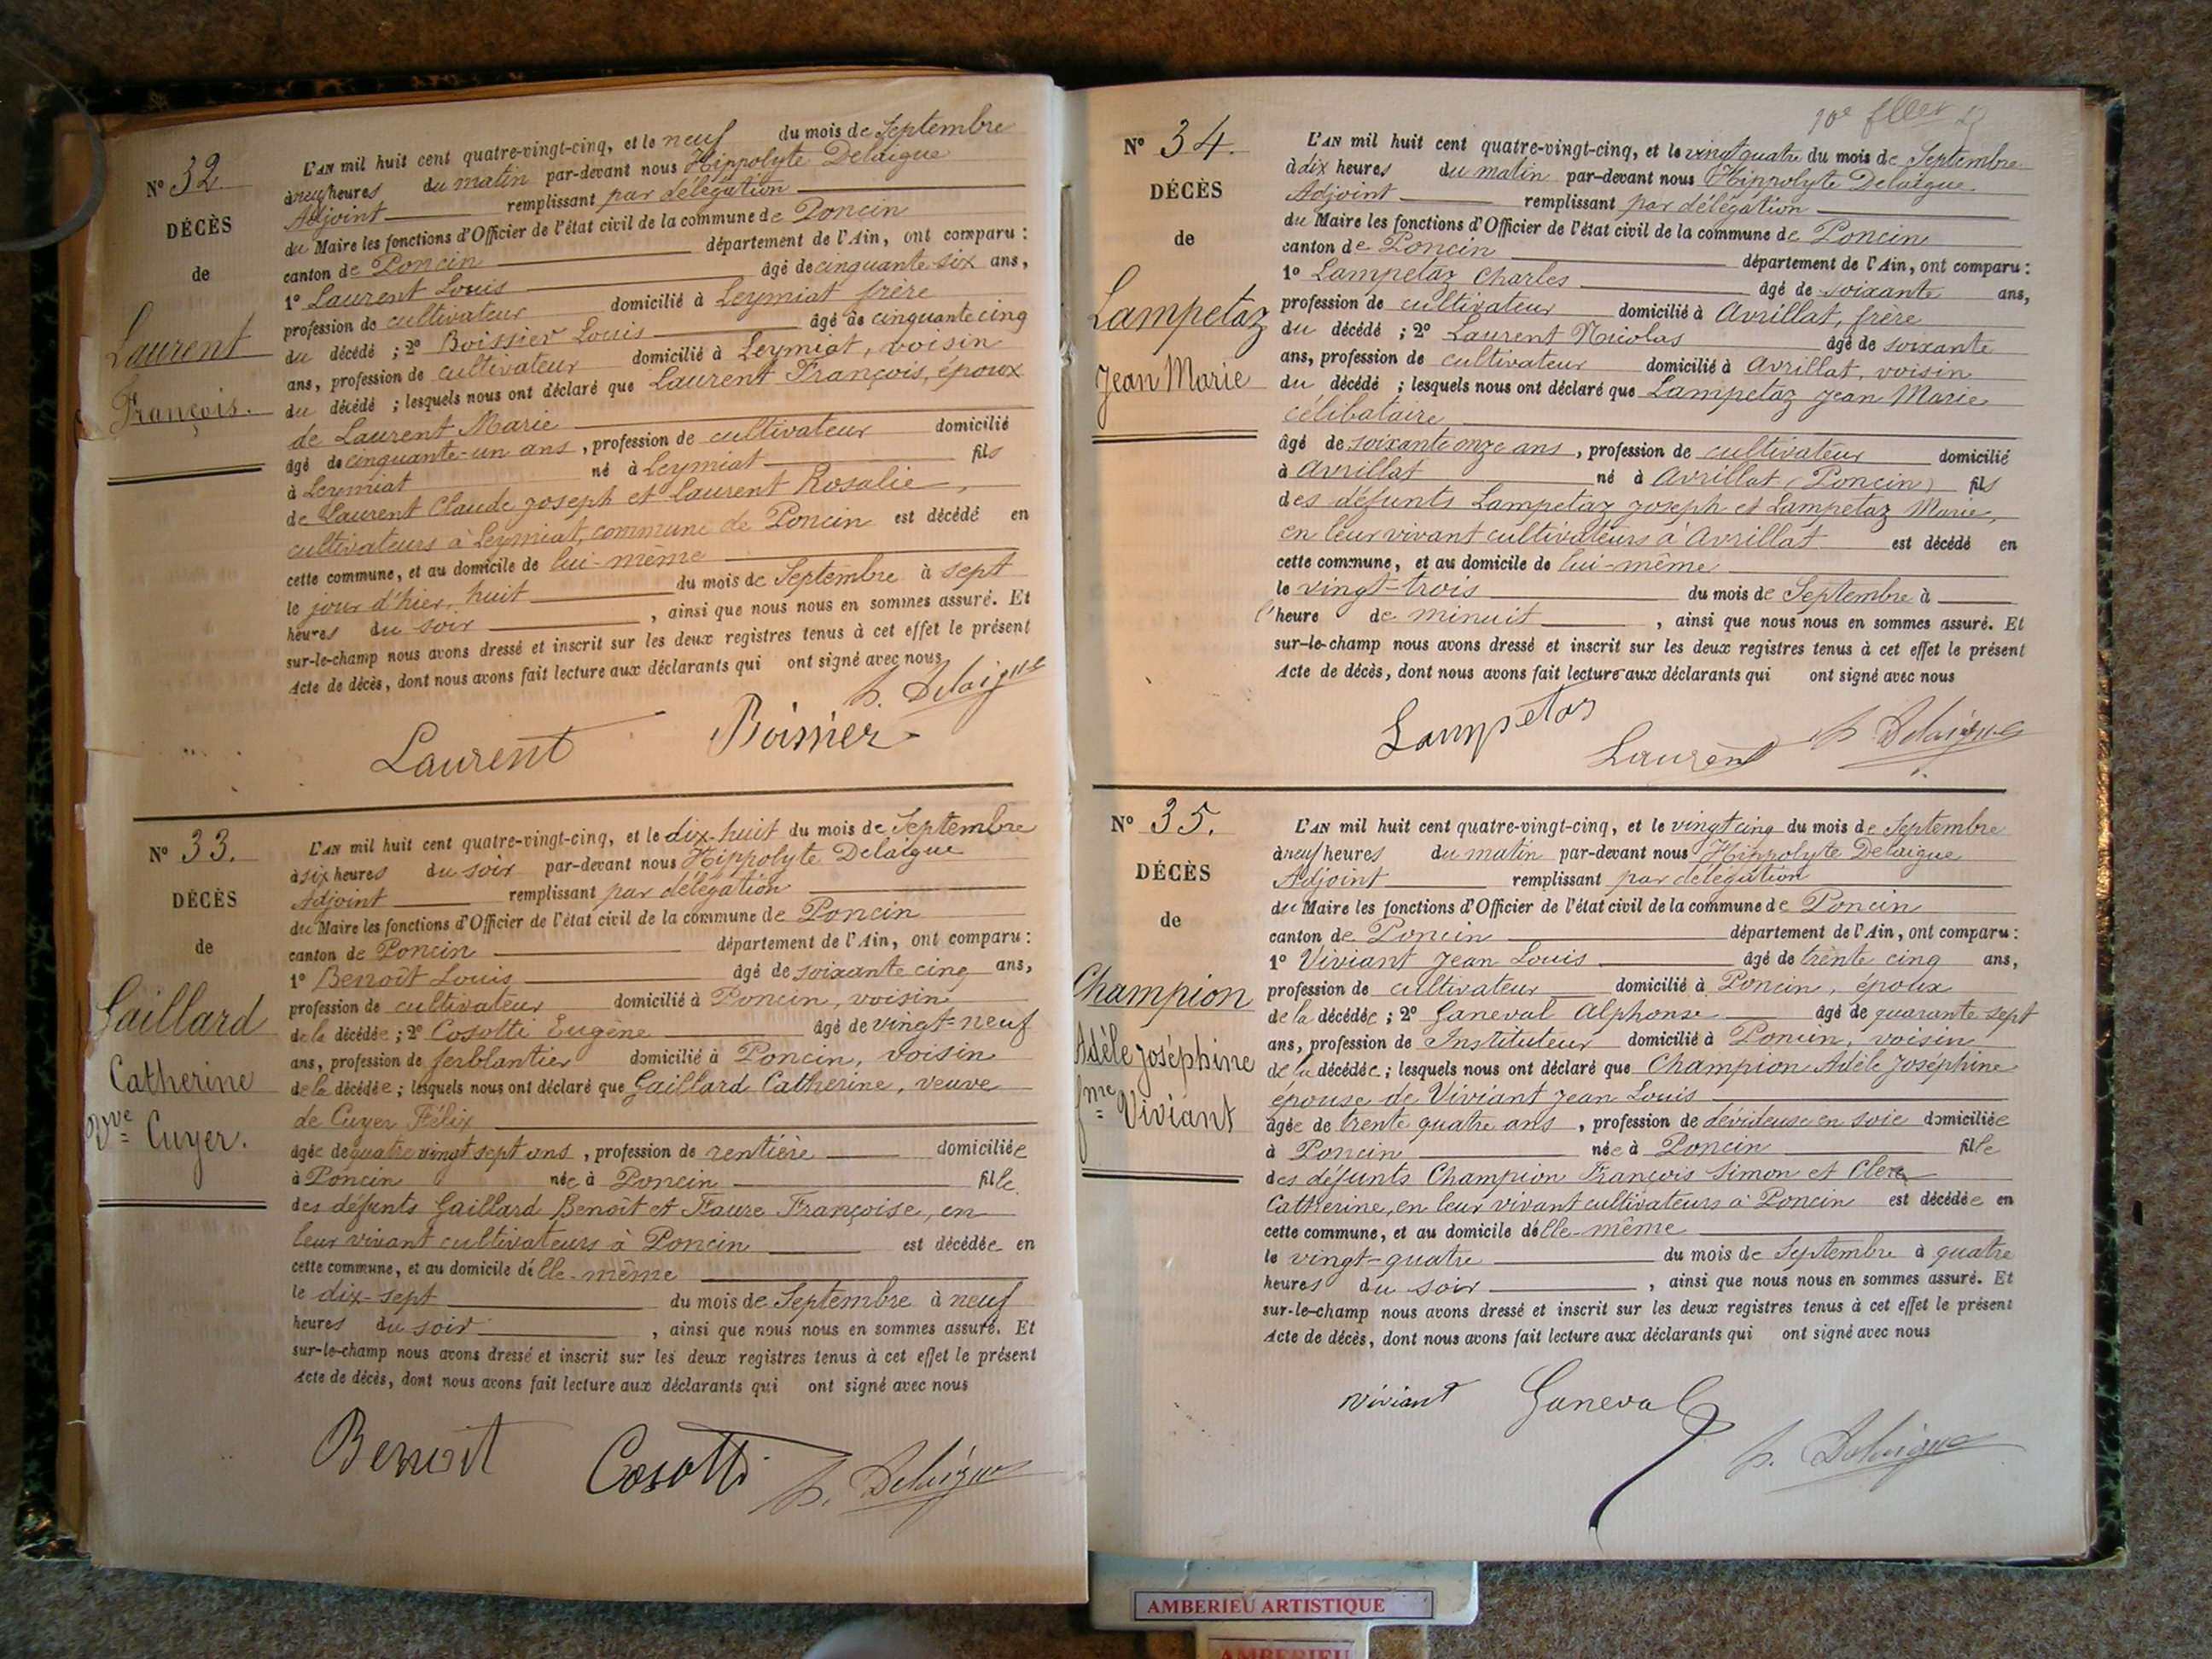 N° 32.
DÉCÈS
de
Laurent
François.
L'AN mil huit cent quatre-vingt-cinq, et le neuf du mois de Septembre
à neuf heures du matin par-devant nous Hippolyte Delaigue
Adjoint remplissant par délégation
du Maire les fonctions d'Officier de l'état civil de la commune de Poncin
canton de Poncin département de l'Ain, ont comparu :
1° Laurent Louis âgé de cinquante six ans,
profession de cultivateur domicilié à Leymiat frère
du décédé ; 2° Boissier Louis âgé de cinquante cinq
ans, profession de cultivateur domicilié à Leymiat, voisin
du décédé ; lesquels nous ont déclaré que Laurent François, époux
de Laurent Marie
âgé de cinquante-un ans, profession de cultivateur domicilié
à Leymiat né à Leymiat fils
de Laurent Claude Joseph et Laurent Rosalie,
cultivateurs à Leymiat, commune de Poncin est décédé en
cette commune, et au domicile de lui-même
le jour d'hier, huit du mois de Septembre à sept
heures du soir, ainsi que nous nous en sommes assuré. Et
sur-le-champ nous avons dressé et inscrit sur les deux registres tenus à cet effet le présent
Acte de décès, dont nous avons fait lecture aux déclarants qui ont signé avec nous
h. Delaigue
Laurent Boissier
N° 33.
DÉCÈS
de
Gaillard
Catherine
Vve Cuyer.
L'AN mil huit cent quatre-vingt-cinq, et le dix-huit du mois de Septembre
à six heures du soir par-devant nous Hippolyte Delaigue
Adjoint remplissant par délégation
du Maire les fonctions d'Officier de l'état civil de la commune de Poncin
canton de Poncin département de l'Ain, ont comparu :
1° Benoît Louis âgé de soixante cinq ans,
profession de cultivateur domicilié à Poncin, voisin
de la décédée ; 2° Cosotti Eugène âgé de vingt-neuf
ans, profession de ferblantier domicilié à Poncin, voisin
de la décédée ; lesquels nous ont déclaré que Gaillard Catherine, veuve
de Cuyer Félix
âgée de quatre vingt sept ans, profession de rentière domiciliée
à Poncin née à Poncin fille
des défunts Gaillard Benoît et Faure Françoise, en
leur vivant cultivateurs à Poncin est décédée en
cette commune, et au domicile d'elle-même
le dix-sept du mois de Septembre à neuf
heures du soir, ainsi que nous nous en sommes assuré. Et
sur-le-champ nous avons dressé et inscrit sur les deux registres tenus à cet effet le présent
Acte de décès, dont nous avons fait lecture aux déclarants qui ont signé avec nous
Benoit Cosotti h. Delaigue
N° 34.
DÉCÈS
de
Lampetaz
Jean Marie
L'AN mil huit cent quatre-vingt-cinq, et le vingt quatre du mois de Septembre
à dix heures du matin par-devant nous Hippolyte Delaigue
Adjoint remplissant par délégation
du Maire les fonctions d'Officier de l'état civil de la commune de Poncin
canton de Poncin département de l'Ain, ont comparu :
1° Lampetaz Charles âgé de soixante ans,
profession de cultivateur domicilié à Avrillat, frère
du décédé ; 2° Laurent Nicolas âgé de soixante
ans, profession de cultivateur domicilié à Avrillat, voisin
du décédé ; lesquels nous ont déclaré que Lampetaz Jean Marie
célibataire
âgé de soixante onze ans, profession de cultivateur domicilié
à Avrillat né à Avrillat (Poncin) fils
des défunts Lampetaz Joseph et Lampetaz Marie,
en leur vivant cultivateurs à Avrillat est décédé en
cette commune, et au domicile de lui-même
le vingt-trois du mois de Septembre à
l'heure de minuit, ainsi que nous nous en sommes assuré. Et
sur-le-champ nous avons dressé et inscrit sur les deux registres tenus à cet effet le présent
Acte de décès, dont nous avons fait lecture aux déclarants qui ont signé avec nous
Lampetaz Laurent h. Delaigue
N° 35.
DÉCÈS
de
Champion
Adèle Joséphine
fme Viviant
L'AN mil huit cent quatre-vingt-cinq, et le vingt cinq du mois de Septembre
à neuf heures du matin par-devant nous Hippolyte Delaigue
Adjoint remplissant par délégation
du Maire les fonctions d'Officier de l'état civil de la commune de Poncin
canton de Poncin département de l'Ain, ont comparu :
1° Viviant Jean Louis âgé de trente cinq ans,
profession de cultivateur domicilié à Poncin, époux
de la décédée ; 2° Ganeval Alphonse âgé de quarante sept
ans, profession de Instituteur domicilié à Poncin, voisin
de la décédée ; lesquels nous ont déclaré que Champion Adèle Joséphine
épouse de Viviant Jean Louis
âgée de trente quatre ans, profession de dévideuse en soie domiciliée
à Poncin née à Poncin fille
des défunts Champion François Simon et Clerc
Catherine, en leur vivant cultivateurs à Poncin est décédée en
cette commune, et au domicile d'elle-même
le vingt-quatre du mois de Septembre à quatre
heures du soir, ainsi que nous nous en sommes assuré. Et
sur-le-champ nous avons dressé et inscrit sur les deux registres tenus à cet effet le présent
Acte de décès, dont nous avons fait lecture aux déclarants qui ont signé avec nous
Viviant Ganeval h. Delaigue
AMBERIEU ARTISTIQUE
AMBERIEU